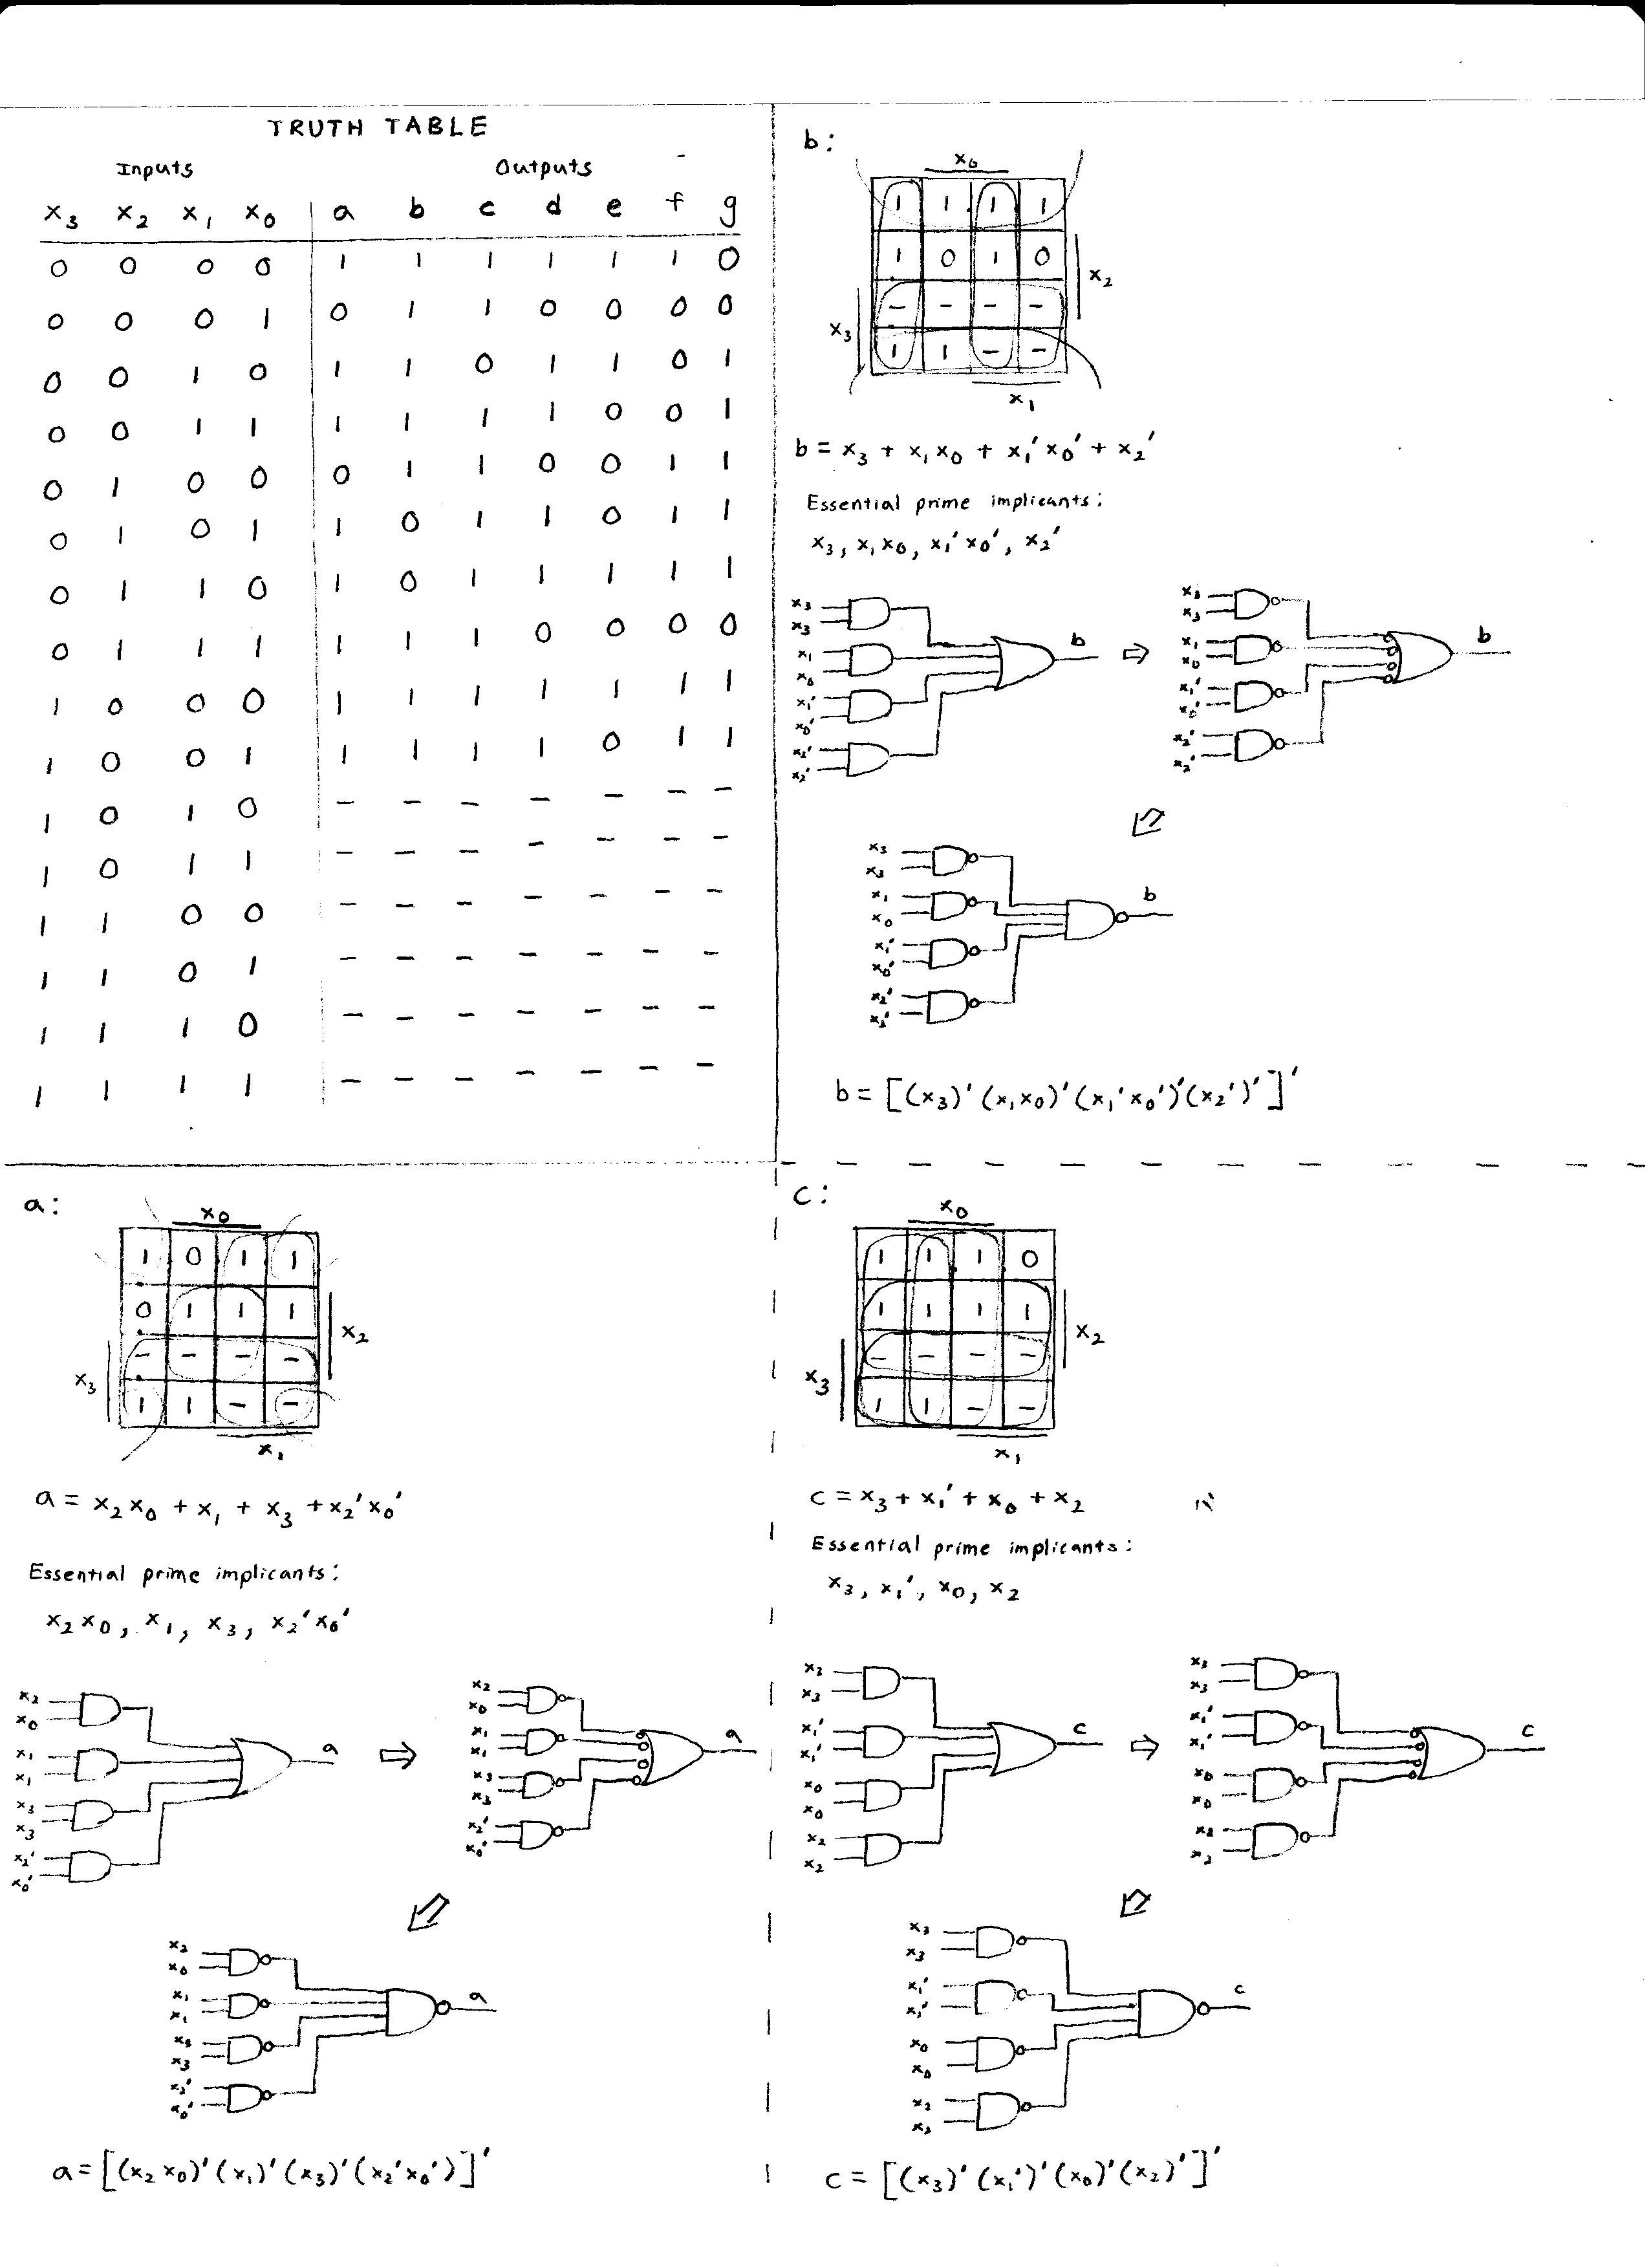 TRUTH TABLE
Inputs Outputs
x3 x2 x1 x0 a b c d e f g
0 0 0 0 1 1 1 1 1 1 0
0 0 0 1 0 1 1 0 0 0 0
0 0 1 0 1 1 0 1 1 0 1
0 0 1 1 1 1 1 1 0 0 1
0 1 0 0 0 1 1 0 0 1 1
0 1 0 1 1 0 1 1 0 1 1
0 1 1 0 1 0 1 1 1 1 1
0 1 1 1 1 1 1 0 0 0 0
1 0 0 0 1 1 1 1 1 1 1
1 0 0 1 1 1 1 1 0 1 1
1 0 1 0 - - - - - - -
1 0 1 1 - - - - - - -
1 1 0 0 - - - - - - -
1 1 0 1 - - - - - - -
1 1 1 0 - - - - - - -
1 1 1 1 - - - - - - -
b:
x0
1 1 1 1
1 0 1 0
x2
- - - -
x3
1 1 - -
x1
b = x3 + x1x0 + x1'x0' + x2'
Essential prime implicants:
x3, x1x0, x1'x0', x2'
x3
x3
x1
x0
x1'
x0'
x2'
x2'
b
⇨
x3
x3
x1
x0
x1'
x0'
x2'
x2'
b
x3
x3
x1
x0
x1'
x0'
x2'
x2'
b
b = [(x3)'(x1x0)'(x1'x0')'(x2')']'
a:
x0
1 0 1 1
0 1 1 1
x2
- - - -
x3
1 1 - -
x1
a = x2x0 + x1 + x3 + x2'x0'
Essential prime implicants:
x2x0, x1, x3, x2'x0'
x2
x0
x1
x1
x3
x3
x2'
x0'
a
⇨
x2
x0
x1
x1
x3
x3
x2'
x0'
a
x2
x0
x1
x1
x3
x3
x2'
x0'
a
a = [(x2x0)'(x1)'(x3)'(x2'x0')]'
c:
x0
1 1 1 0
1 1 1 1
x2
- - - -
x3
1 1 - -
x1
c = x3 + x1' + x0 + x2
Essential prime implicants:
x3, x1', x0, x2
x3
x3
x1'
x1'
x0
x0
x2
x2
c
⇨
x3
x3
x1'
x1'
x0
x0
x2
x2
c
x3
x3
x1'
x1'
x0
x0
x2
x2
c
c = [(x3)'(x1')'(x0)'(x2)']'